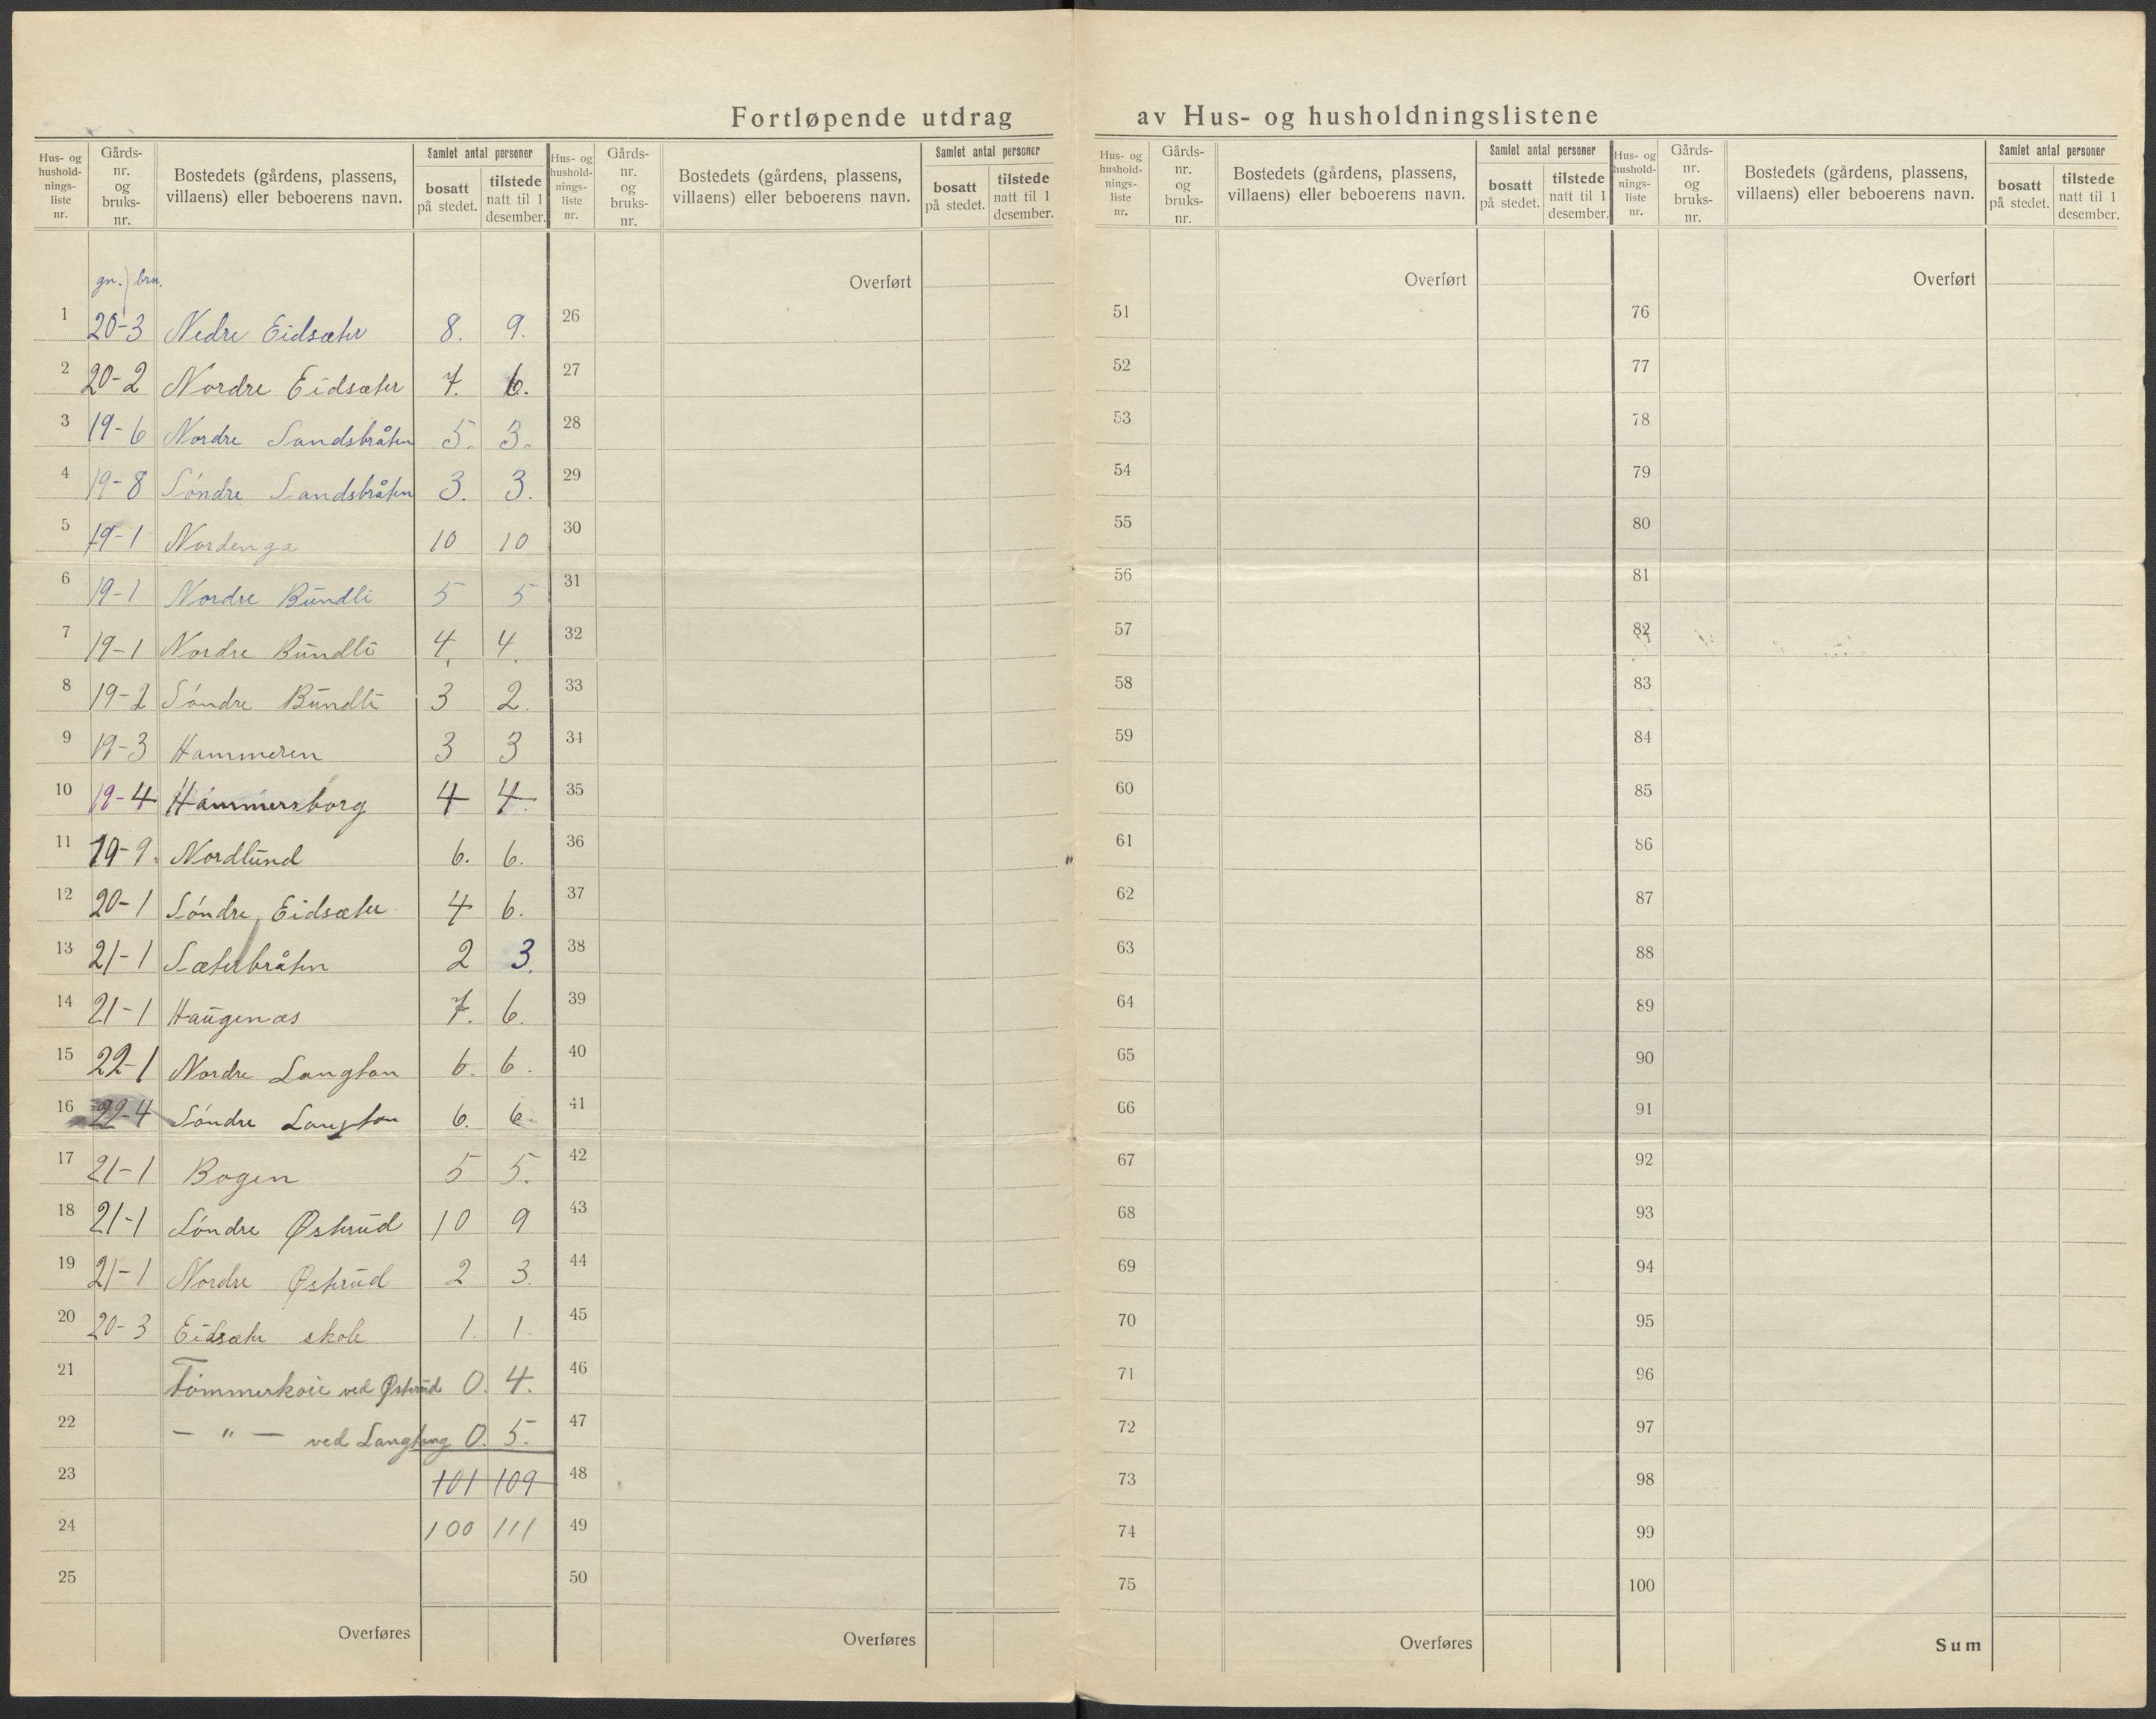 Fortløpende utdrag av Hus- og husholdningslistene
Hus- og hushold- nings- liste nr. Gårds- nr. og bruks- nr. Bostedets (gårdens, plassens, villaens) eller beboerens navn. Samlet antal personer bosatt på stedet. tilstede natt til 1 desember.
Hus- og hushold- nings- liste nr. Gårds- nr. og bruks- nr. Bostedets (gårdens, plassens, villaens) eller beboerens navn. Samlet antal personer bosatt på stedet. tilstede natt til 1 desember.
Hus- og hushold- nings- liste nr. Gårds- nr. og bruks- nr. Bostedets (gårdens, plassens, villaens) eller beboerens navn. Samlet antal personer bosatt på stedet. tilstede natt til 1 desember.
Hus- og hushold- nings- liste nr. Gårds- nr. og bruks- nr. Bostedets (gårdens, plassens, villaens) eller beboerens navn. Samlet antal personer bosatt på stedet. tilstede natt til 1 desember.
gn. brn.
1 20-3 Nedre Eidsæter 8. 9.
2 20-2 Nordre Eidsæter 7. 6.
3 19-6 Nordre Sandsbråten 5. 3.
4 19-8 Söndre Sandsbråten 3. 3.
5 19-1 Nordenga 10 10
6 19-1 Nordre Bundli 5 5
7 19-1 Nordre Bundli 4. 4.
8 19-2 Söndre Bundli 3 2.
9 19-3 Hammeren 3 3
10 19-4 Hammersborg 4 4.
11 19-9. Nordlund 6. 6.
12 20-1 Söndre Eidsæter 4 6.
13 21-1 Sæterbråten 2 3.
14 21-1 Haugenæs 7. 6.
15 22-1 Nordre Langtan 6. 6.
16 22-4 Söndre Langtan 6. 6.
17 21-1 Bogen 5 5.
18 21-1 Söndre Østrud 10 9
19 21-1 Nordre Østrud 2 3.
20 20-3 Eidsæter skole 1. 1.
21 Tömmerkoie ved Østrud 0. 4.
22 — " — ved Langtang 0. 5.
23 101 109
24 100 111
25
Overføres
Overført
26
27
28
29
30
31
32
33
34
35
36
37
38
39
40
41
42
43
44
45
46
47
48
49
50
Overføres
Overført
51
52
53
54
55
56
57
58
59
60
61
62
63
64
65
66
67
68
69
70
71
72
73
74
75
Overføres
Overført
76
77
78
79
80
81
82
83
84
85
86
87
88
89
90
91
92
93
94
95
96
97
98
99
100
Sum